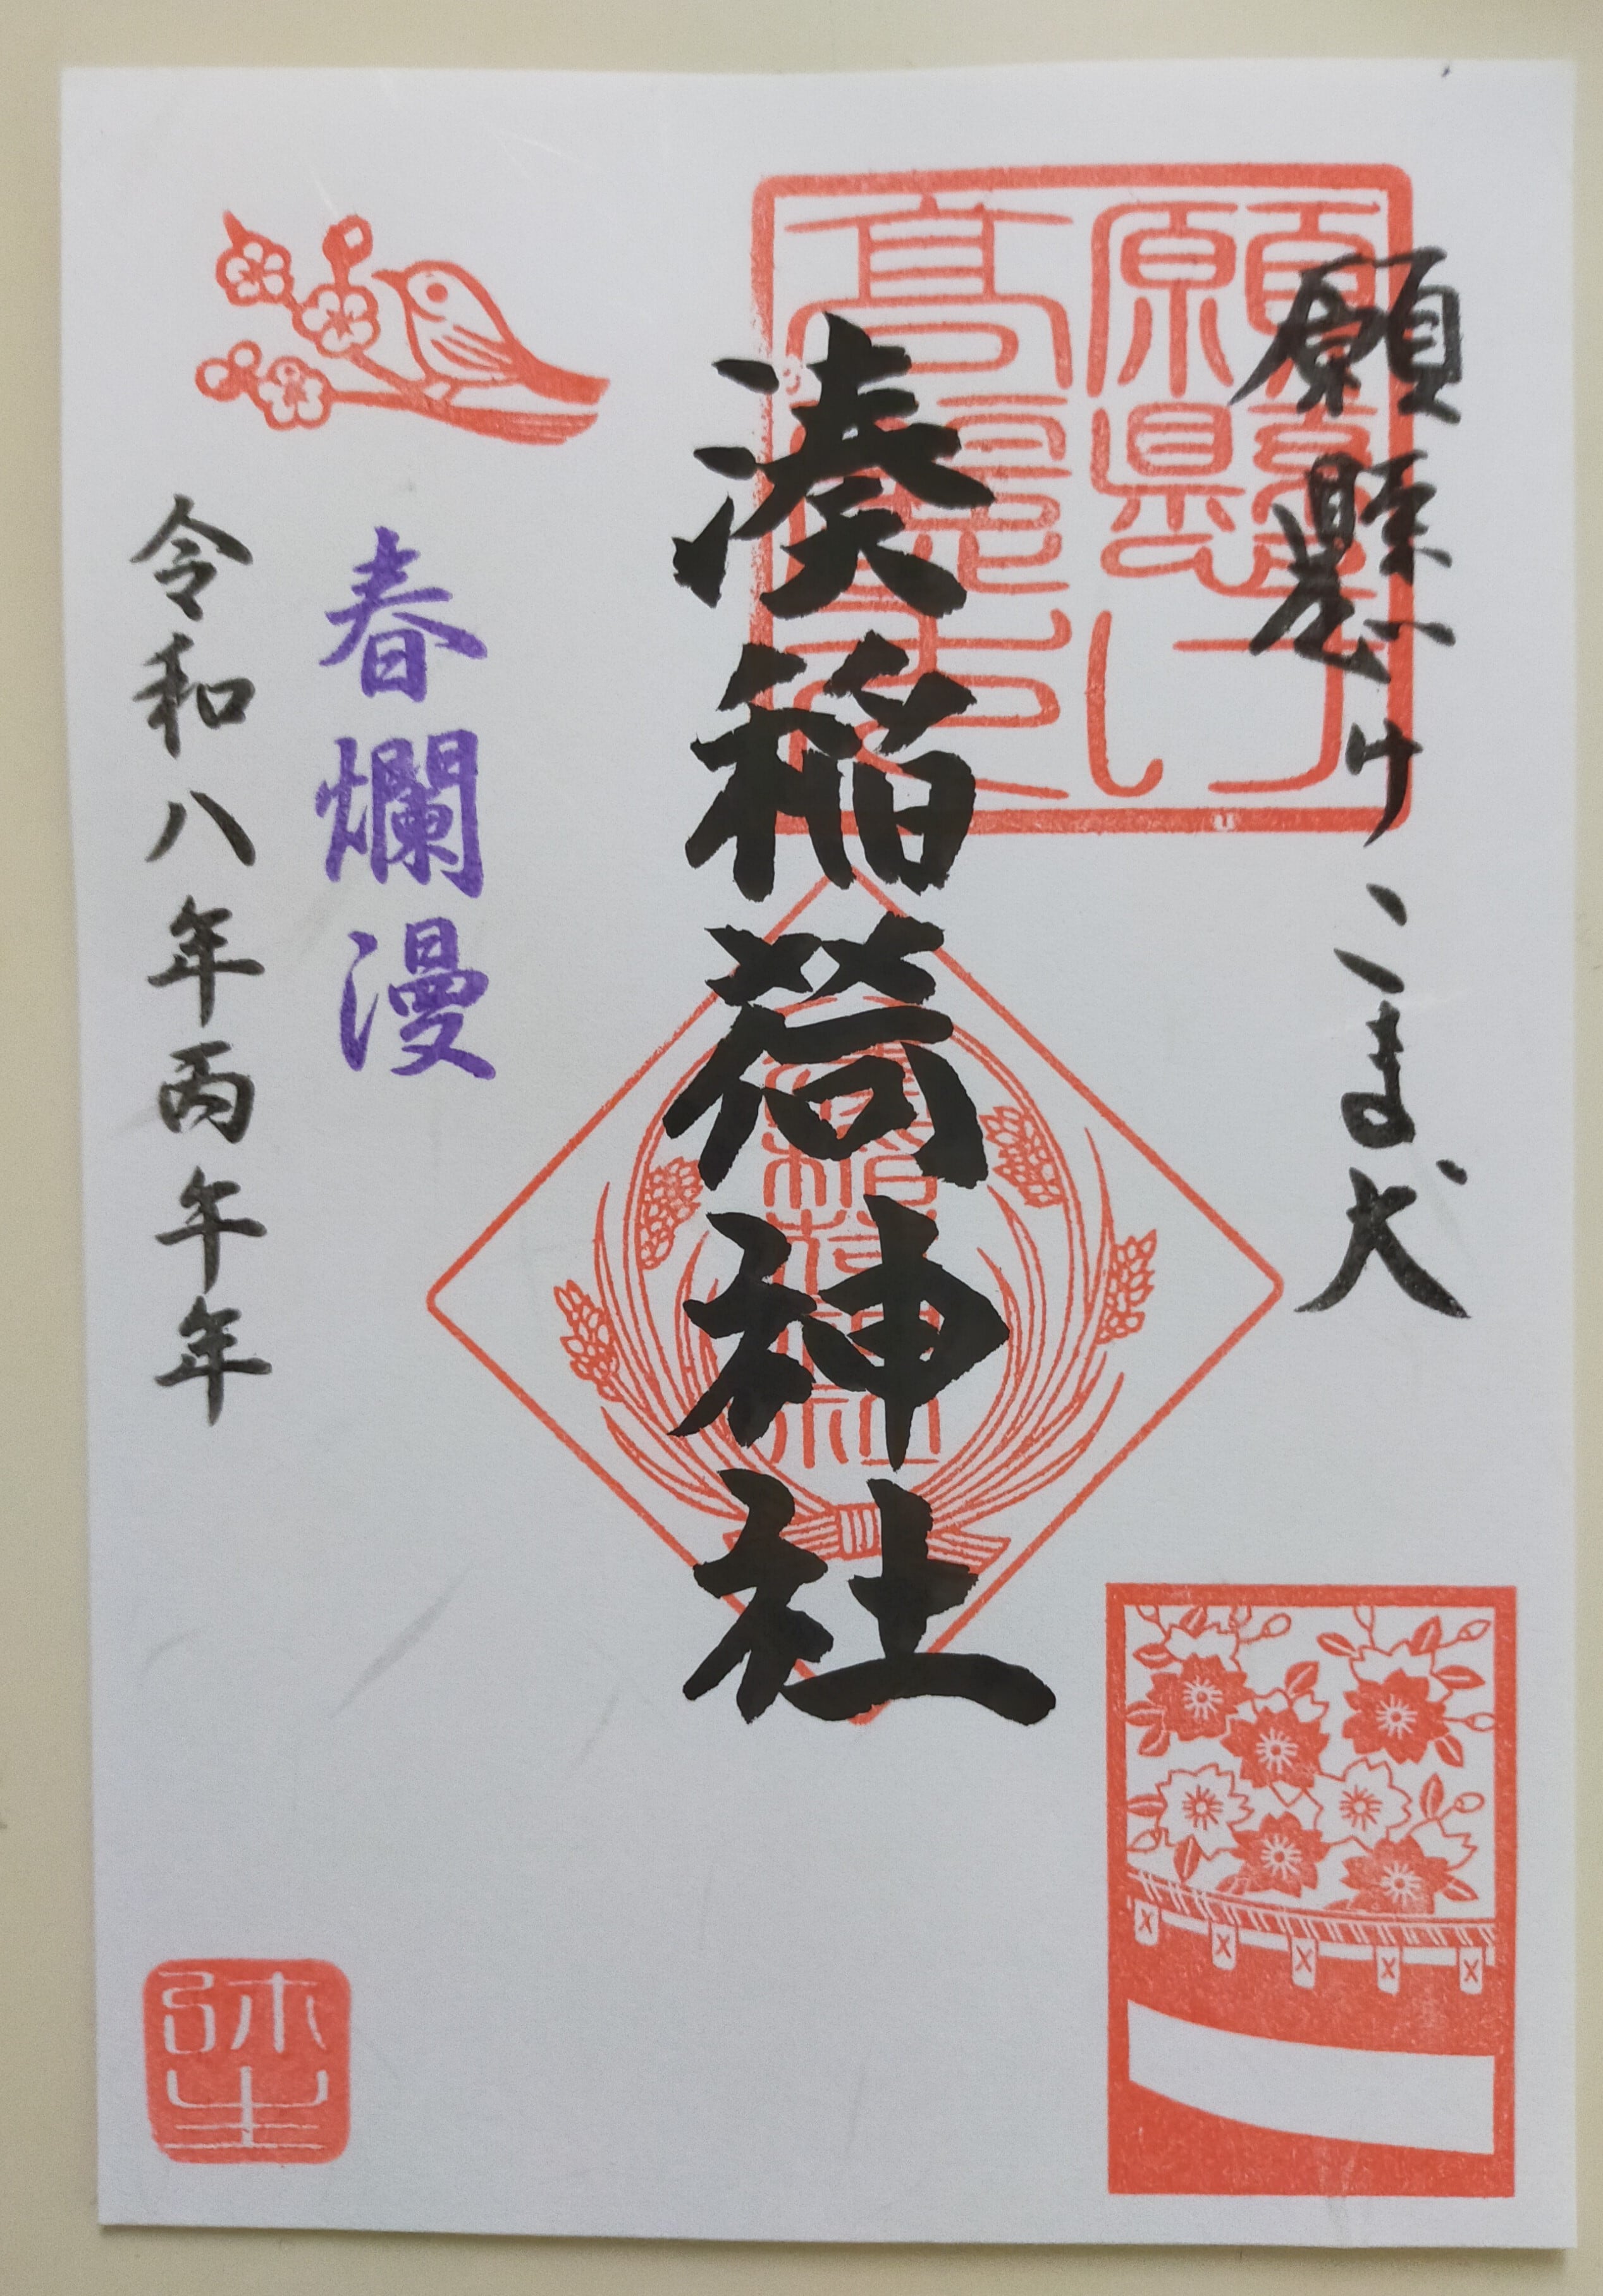 願懸け こま犬
湊稲荷神社
春爛漫
令和八年丙午年
願懸け
高麗犬
湊稲荷神社
弥生